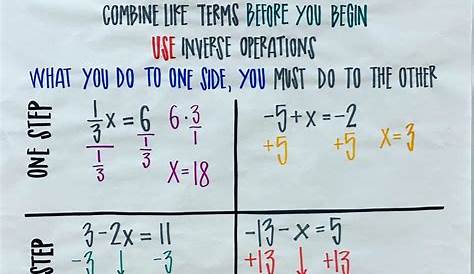 COMBINE LIKE TERMS BEFORE YOU BEGIN
USE INVERSE OPERATIONS
WHAT YOU DO TO ONE SIDE, YOU MUST DO TO THE OTHER
ONE STEP
1/3 x = 6 6·3/1
1/3 1/3 x = 18
-5+x=-2
+5 +5 x=3
STEP
3-2x=11
-3 ↓ -3
-13-x=5
+13 ↓ +13